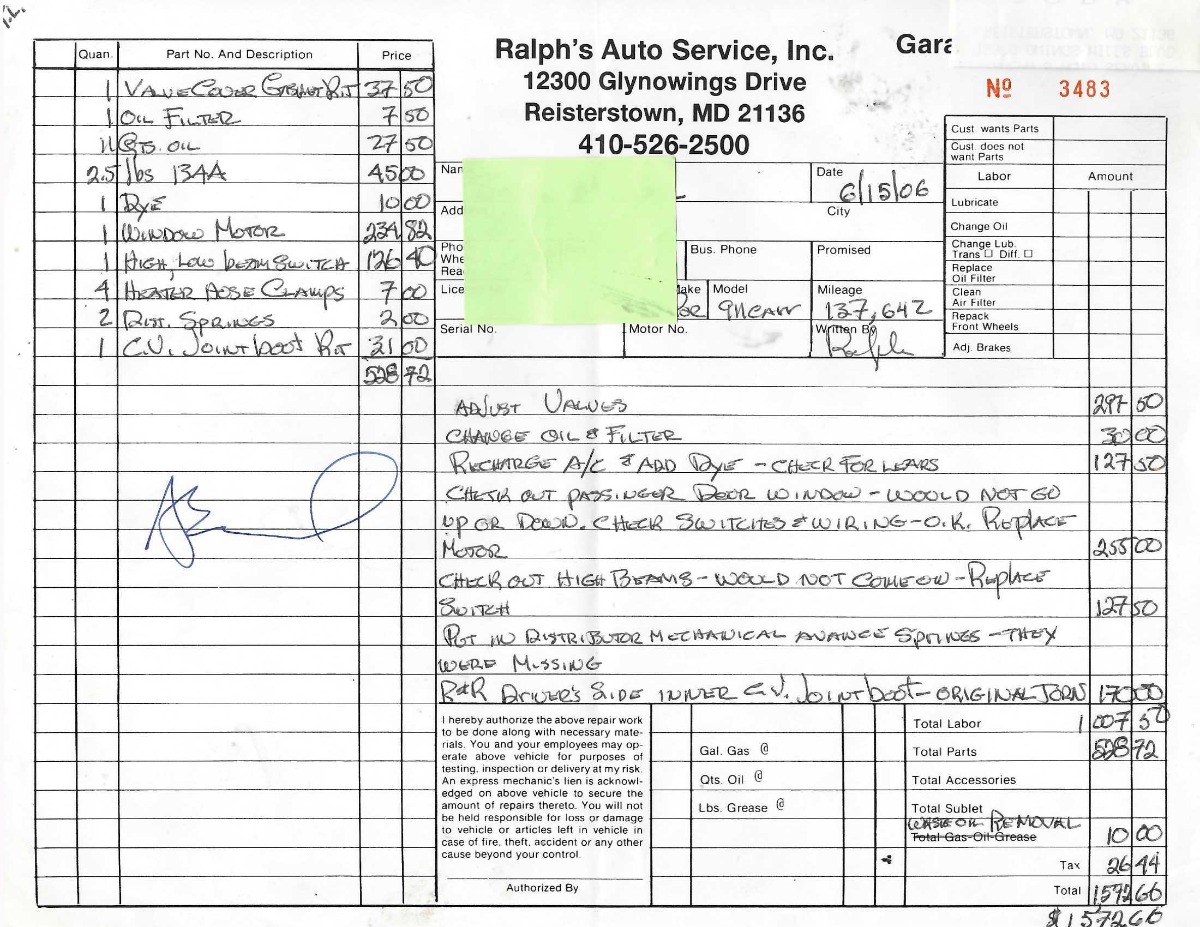 Quan. Part No. And Description Price
1 VALVE COVER GASKET KIT 37 50
1 OIL FILTER 7 50
11 QTS. OIL 27 50
2.5 lbs 134A 45 00
1 DYE 10 00
1 WINDOW MOTOR 234 82
1 HIGH, LOW BEAM SWITCH 126 40
4 HEATER HOSE CLAMPS 7 00
2 DIST. SPRINGS 2 00
1 C.V. JOINT boot KIT 31 00
528 72
Ralph's Auto Service, Inc.
12300 Glynowings Drive
Reisterstown, MD 21136
410-526-2500
Gara
Nº 3483
Nam
Date
6/15/06
Add
City
Pho
Whe
Rea
Bus. Phone
Promised
Lice
ake
Model
911CARR
Mileage
137,642
Serial No.
Motor No.
Written By
Ralph
Cust. wants Parts
Cust. does not
want Parts
Labor Amount
Lubricate
Change Oil
Change Lub.
Trans ☐ Diff. ☐
Replace
Oil Filter
Clean
Air Filter
Repack
Front Wheels
Adj. Brakes
ADJUST VALVES 297 50
CHANGE OIL & FILTER 30 00
RECHARGE A/C & ADD DYE - CHECK FOR LEAKS 127 50
CHECK OUT PASSINGER DOOR WINDOW - WOULD NOT GO
UP OR DOWN. CHECK SWITCHES & WIRING - O.K. REPLACE
MOTOR 255 00
CHECK OUT HIGH BEAMS - WOULD NOT COME ON - REPLACE
SWITCH 127 50
PUT IN DISTRIBUTOR MECHANICAL AVANCE SPRINGS - THEY
WERE MISSING
R&R DRIVER'S SIDE INNER C.V. JOINT boot - ORIGINAL TORN 170 00
I hereby authorize the above repair work
to be done along with necessary mate-
rials. You and your employees may op-
erate above vehicle for purposes of
testing, inspection or delivery at my risk.
An express mechanic's lien is acknowl-
edged on above vehicle to secure the
amount of repairs thereto. You will not
be held responsible for loss or damage
to vehicle or articles left in vehicle in
case of fire, theft, accident or any other
cause beyond your control.
Authorized By
Gal. Gas @
Qts. Oil @
Lbs. Grease @
Total Labor 1007 50
Total Parts 528 72
Total Accessories
Total Sublet
WASTE OIL REMOVAL
Total Gas-Oil-Grease 10 00
Tax 26 44
Total 1572 66
$1572 66